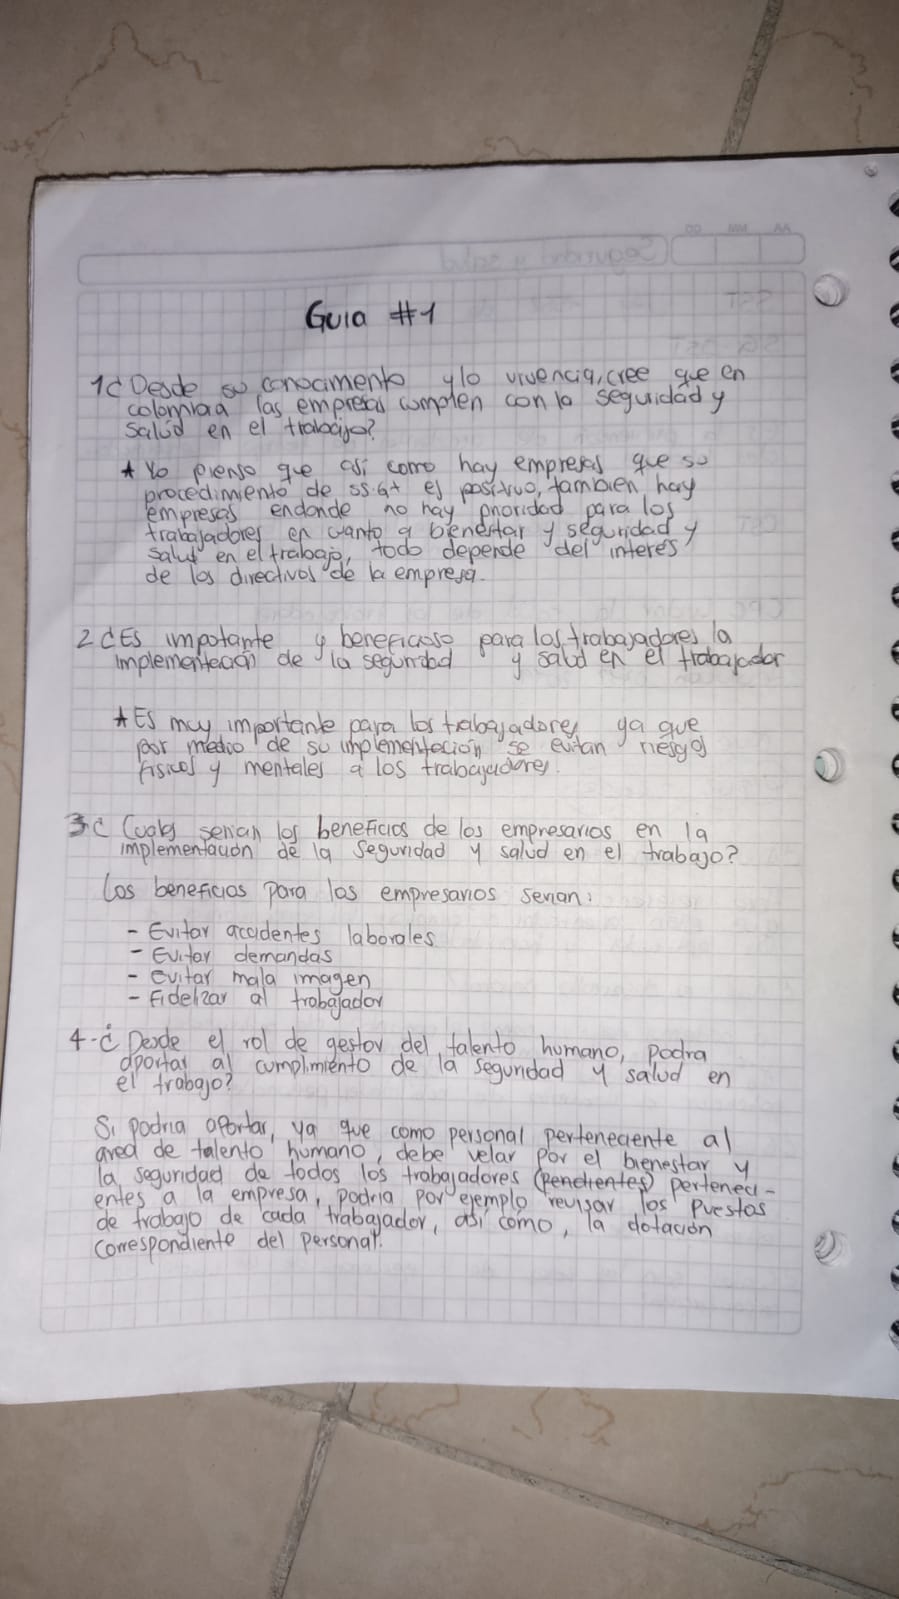 Guia #1
1¿ Desde su conocimento y/o vivencia, cree que en
colombia las empresas cumplen con la seguridad y
salud en el trabajo?
★ Yo pienso que asi como hay empresas que su
procedimiento de ss.G+ es positivo, tambien hay
empresas endonde no hay prioridad para los
trabajadores en cuanto a bienestar y seguridad y
salud en el trabajo, todo depende del interes
de los directivos de la empresa.
2 ¿Es impotante y beneficioso para los trabajadores la
implementación de la seguridad y salud en el trabajador
★ Es muy importante para los trabajadores ya que
por medio de su implementación se evitan riesgos
fisicos y mentales a los trabajadores.
3¿ Cuales serian los beneficios de los empresarios en la
implementación de la seguridad y salud en el trabajo?
Los beneficios para los empresarios serian:
- Evitar accidentes laborales
- Evitar demandas
- Evitar mala imagen
- Fidelizar al trabajador
4-¿ Desde el rol de gestor del talento humano, podra
aportar al cumplimiento de la seguridad y salud en
el trabajo?
Si podria aportar, ya que como personal perteneciente al
area de talento humano, debe velar por el bienestar y
la seguridad de todos los trabajadores (pendientes) perteneci-
entes a la empresa, podria por ejemplo revisar los puestos
de trabajo de cada trabajador, así como, la dotación
correspondiente del personal.